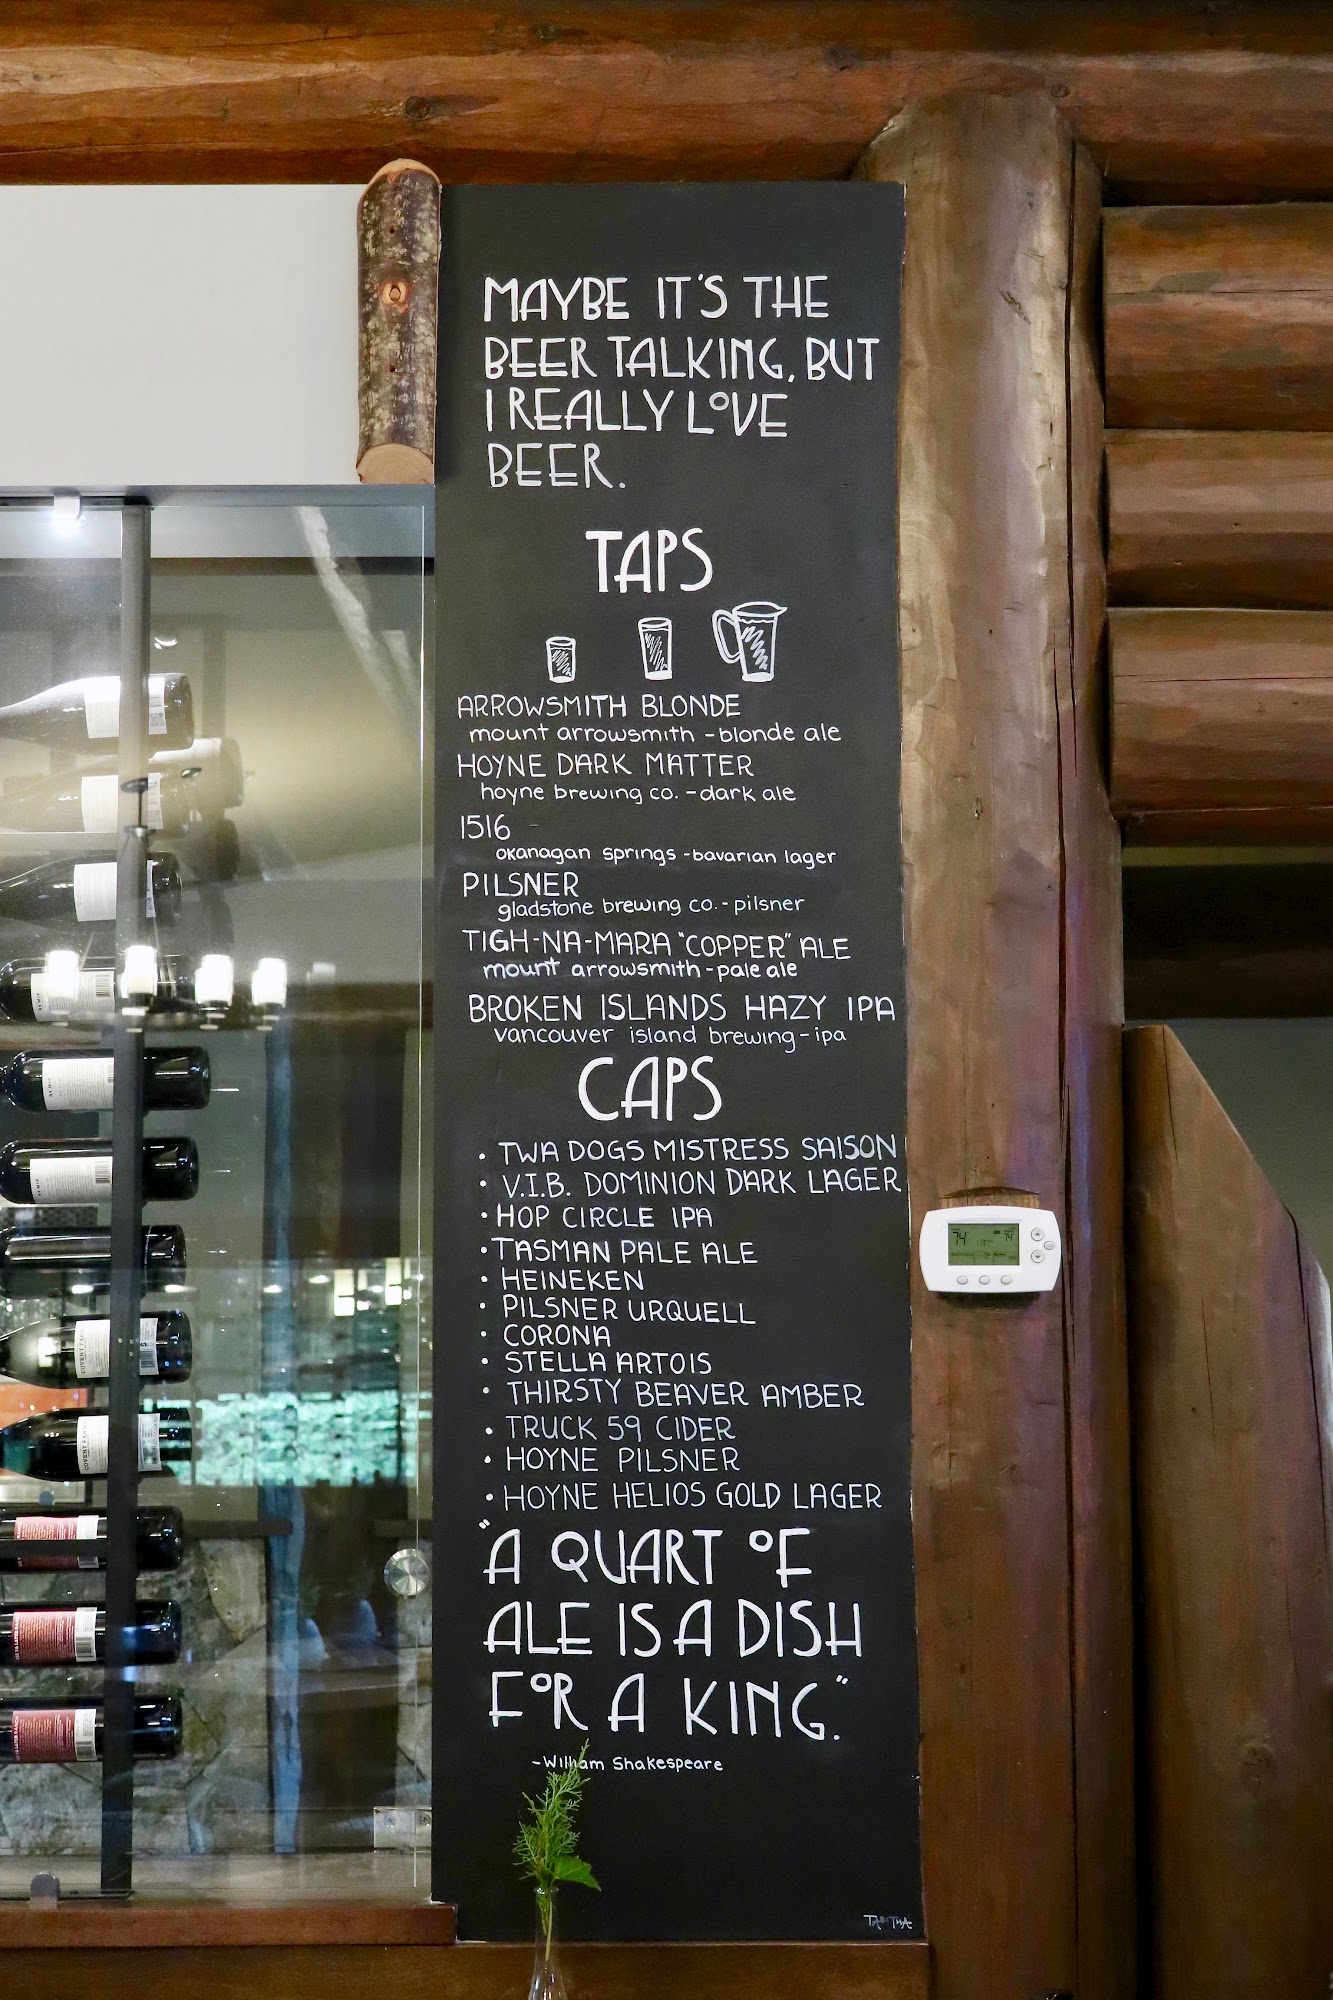 MAYBE IT'S THE
BEER TALKING, BUT
I REALLY LOVE
BEER.
TAPS
ARROWSMITH BLONDE
mount arrowsmith - blonde ale
HOYNE DARK MATTER
hoyne brewing co. - dark ale
1516
okanagan springs - bavarian lager
PILSNER
gladstone brewing co. - pilsner
TIGH-NA-MARA "COPPER" ALE
mount arrowsmith - pale ale
BROKEN ISLANDS HAZY IPA
vancouver island brewing - ipa
CAPS
• TWA DOGS MISTRESS SAISON
• V.I.B. DOMINION DARK LAGER
• HOP CIRCLE IPA
• TASMAN PALE ALE
• HEINEKEN
• PILSNER URQUELL
• CORONA
• STELLA ARTOIS
• THIRSTY BEAVER AMBER
• TRUCK 59 CIDER
• HOYNE PILSNER
• HOYNE HELIOS GOLD LAGER
"A QUART OF
ALE IS A DISH
FOR A KING."
- William Shakespeare
TABITHA
74
74